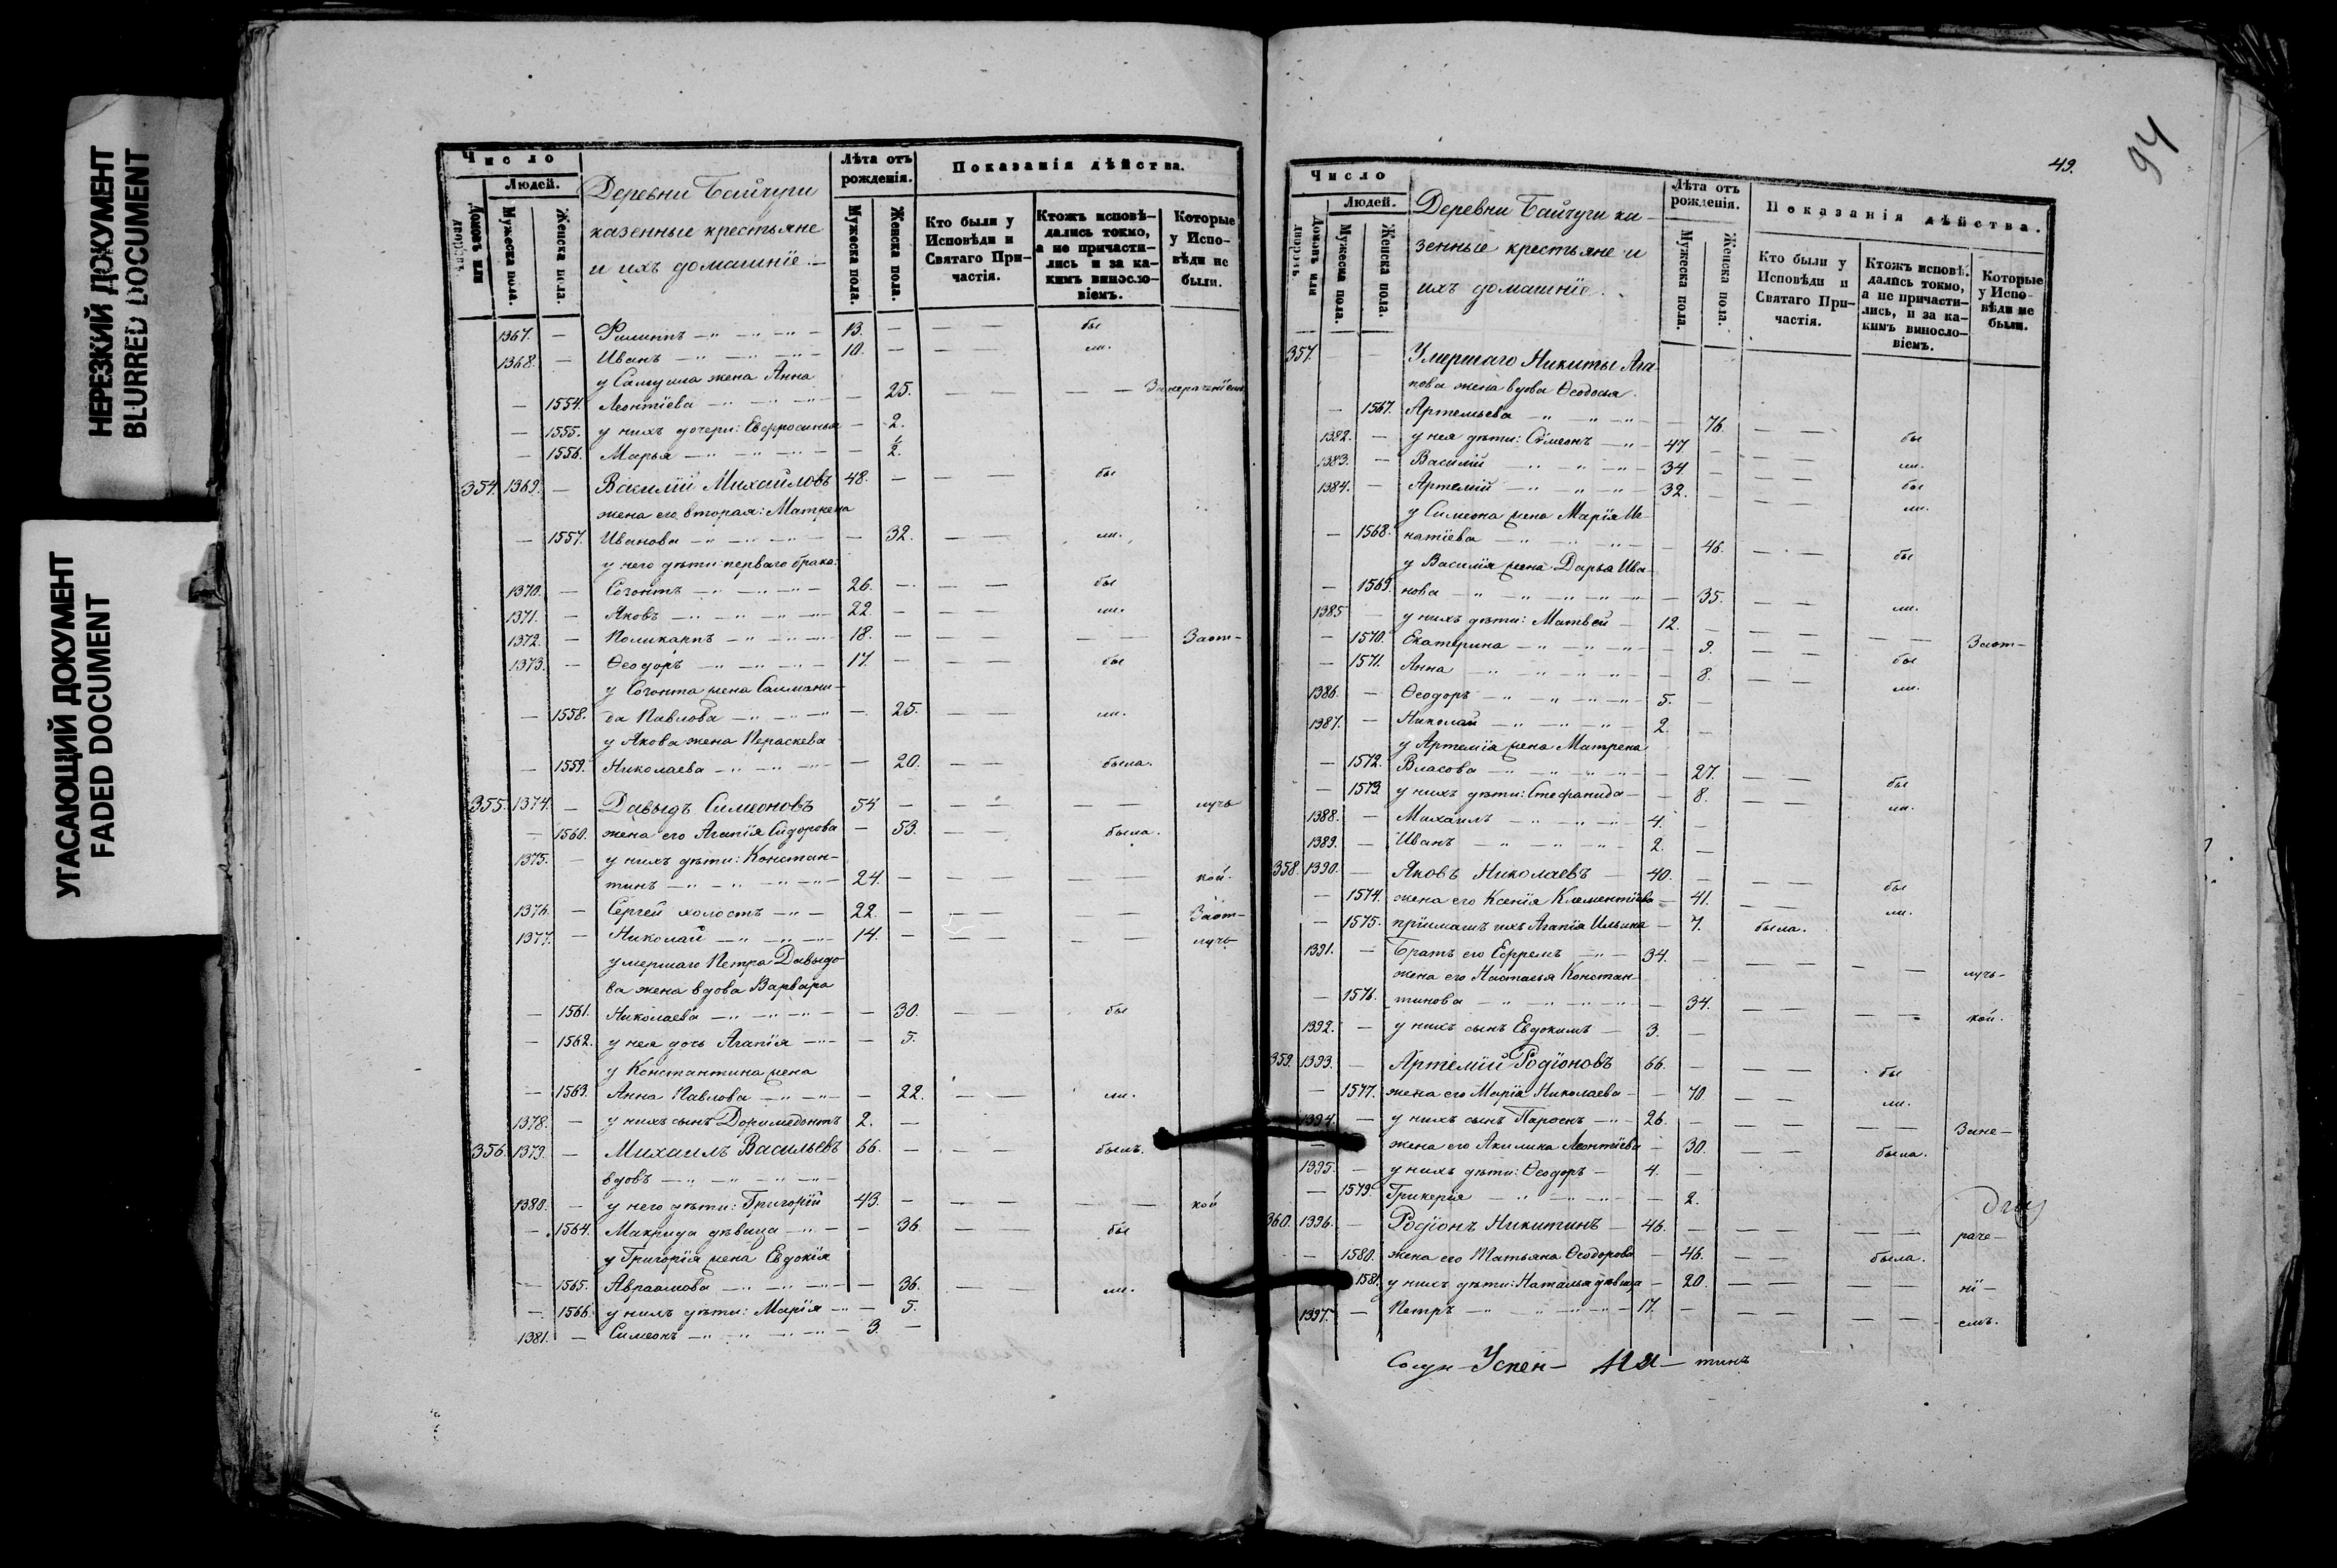 НЕРЕЗКИЙ ДОКУМЕНТ
BLURRED DOCUMENT
УГАСАЮЩИЙ ДОКУМЕНТ
FADED DOCUMENT
Число
Людей.
Домовъ или дворовъ.
Мужеска пола.
Женска пола.
Деревни Байчуги
казенные крестьяне
и ихъ домашніе.
Лѣта отъ рожденія.
Мужеска пола.
Женска пола.
Показанія дѣйства.
Кто были у Исповѣди и Святаго Причастія.
Ктожъ исповѣдались токмо, а не причастились и за какимъ винословіемъ.
Которые у Исповѣди не были.
1367. — Филиппъ 13. — — — бы
1368. — Иванъ 10. — — — ли.
у Самуила жена Анна
— 1554. Леонтіева — 25. — — — Занерачніемъ
— 1555. у нихъ дочери: Евфросинья — 2.
— 1556. Марья — ½.
354. 1369. — Василій Михайловъ 48. — — — бы
жена его вторая: Матрена
— 1557. Иванова — 32. — — ли.
у него дѣти перваго брака:
1370. — Созонтъ 26. — — — бы
1371. — Яковъ 22. — — — ли.
1372. — Поликарпъ 18. — — — — — Заот-
1373. — Ѳеодоръ 17. — — — бы
у Созонта жена Саломани-
— 1558. да Павлова — 25. — — ли.
у Якова жена Параскева
— 1559. Николаева — 20. — — была.
355. 1374. — Давыдъ Симеоновъ 54 — — — — — лучь
— 1560. жена его Агапія Сидорова — 53. — — была.
1375. — у нихъ дѣти: Констан-
тинъ 24. — — — — — кой.
1376. — Сергей холостъ 22. — — — — Заот-
1377. — Николай 14. — — — — — лучь
умершаго Петра Давыдо
ва жена вдова Варвара
— 1561. Николаева — 30. — — бы
— 1562. у нея дочь Агапія — 5.
у Константина жена
— 1563. Анна Павлова — 22. — — ли.
1378. — у нихъ сынъ Доримедонтъ 2. —
356. 1379. — Михаилъ Васильевъ 66. — — — былъ.
вдовъ
1380. — у него дѣти: Григорій 43. — — — — — кой
— 1564. Макрида дѣвица — 36. — — бы
у Григорія жена Евдокія
— 1565. Авраамова — 36. — — ли.
— 1566. у нихъ дѣти: Марія — 5.
1381. — Симеонъ 3. —
94
49.
Число
Людей.
Домовъ или дворовъ.
Мужеска пола.
Женска пола.
Деревни Байчуги ка-
зенные крестьяне и
ихъ домашніе.
Лѣта отъ рожденія.
Мужеска пола.
Женска пола.
Показанія дѣйства.
Кто были у Исповѣди и Святаго Причастія.
Ктожъ исповѣдались токмо, а не причастились, и за какимъ винословіемъ.
Которые у Исповѣди не были.
357. — Умершаго Никиты Ага-
пова жена вдова Ѳеодосья
— 1567. Артемьева — 76. — — бы
1382. — у нея дѣти: Симеонъ 47. — — — ли.
1383. — Василій 34. — — — бы
1384. — Артемій 32. — — — ли.
у Симеона жена Марія Иг-
— 1568. натіева — 46. — — бы
у Василія жена Дарья Ива-
— 1569. нова — 35. — — ли.
1385 — у нихъ дѣти: Матвей 12. — — — — — Заот-
— 1570. Екатерина — 9. — — бы
— 1571. Анна — 8. — — ли.
1386. — Ѳеодоръ 5. —
1387. — Николай 2. —
у Артемія жена Матрена
— 1572. Власова — 27. — — бы
— 1573. у нихъ дѣти: Стефанида — 8. — — ли.
1388. — Михаилъ 4. —
1389. — Иванъ 2. —
358. 1390. — Яковъ Николаевъ 40. — — — бы
— 1574. жена его Ксенія Клементіева — 41. — — ли.
— 1575. пріимашъ ихъ Агапія Ильина — 7. была.
1391. — Братъ его Ефремъ 34. — — — — — лучь-
жена его Настасья Констан-
— 1576. тинова — 34. — — — — кой.
1392. — у нихъ сынъ Евдокимъ 3. —
359. 1393. — Артемій Родіоновъ 66. — — — бы
— 1577. жена его Марія Николаева — 70. — — ли.
1394. — у нихъ сынъ Парѳенъ 26. — — — — — Зане-
— жена его Акилина Леонтіева — 30. — — была.
1395. — у нихъ дѣти: Ѳеодоръ 4. —
— 1579. Гликерія — 2.
360. 1396. — Родіонъ Никитинъ 46. — — — — — раче-
— 1580. жена его Татьяна Ѳеодорова — 46. — — была.
1581. у нихъ дѣти: Наталья дѣвица — 20. — — — — ні-
1397. — Петръ 17. — — — — — емъ.
Успен-
тинъ